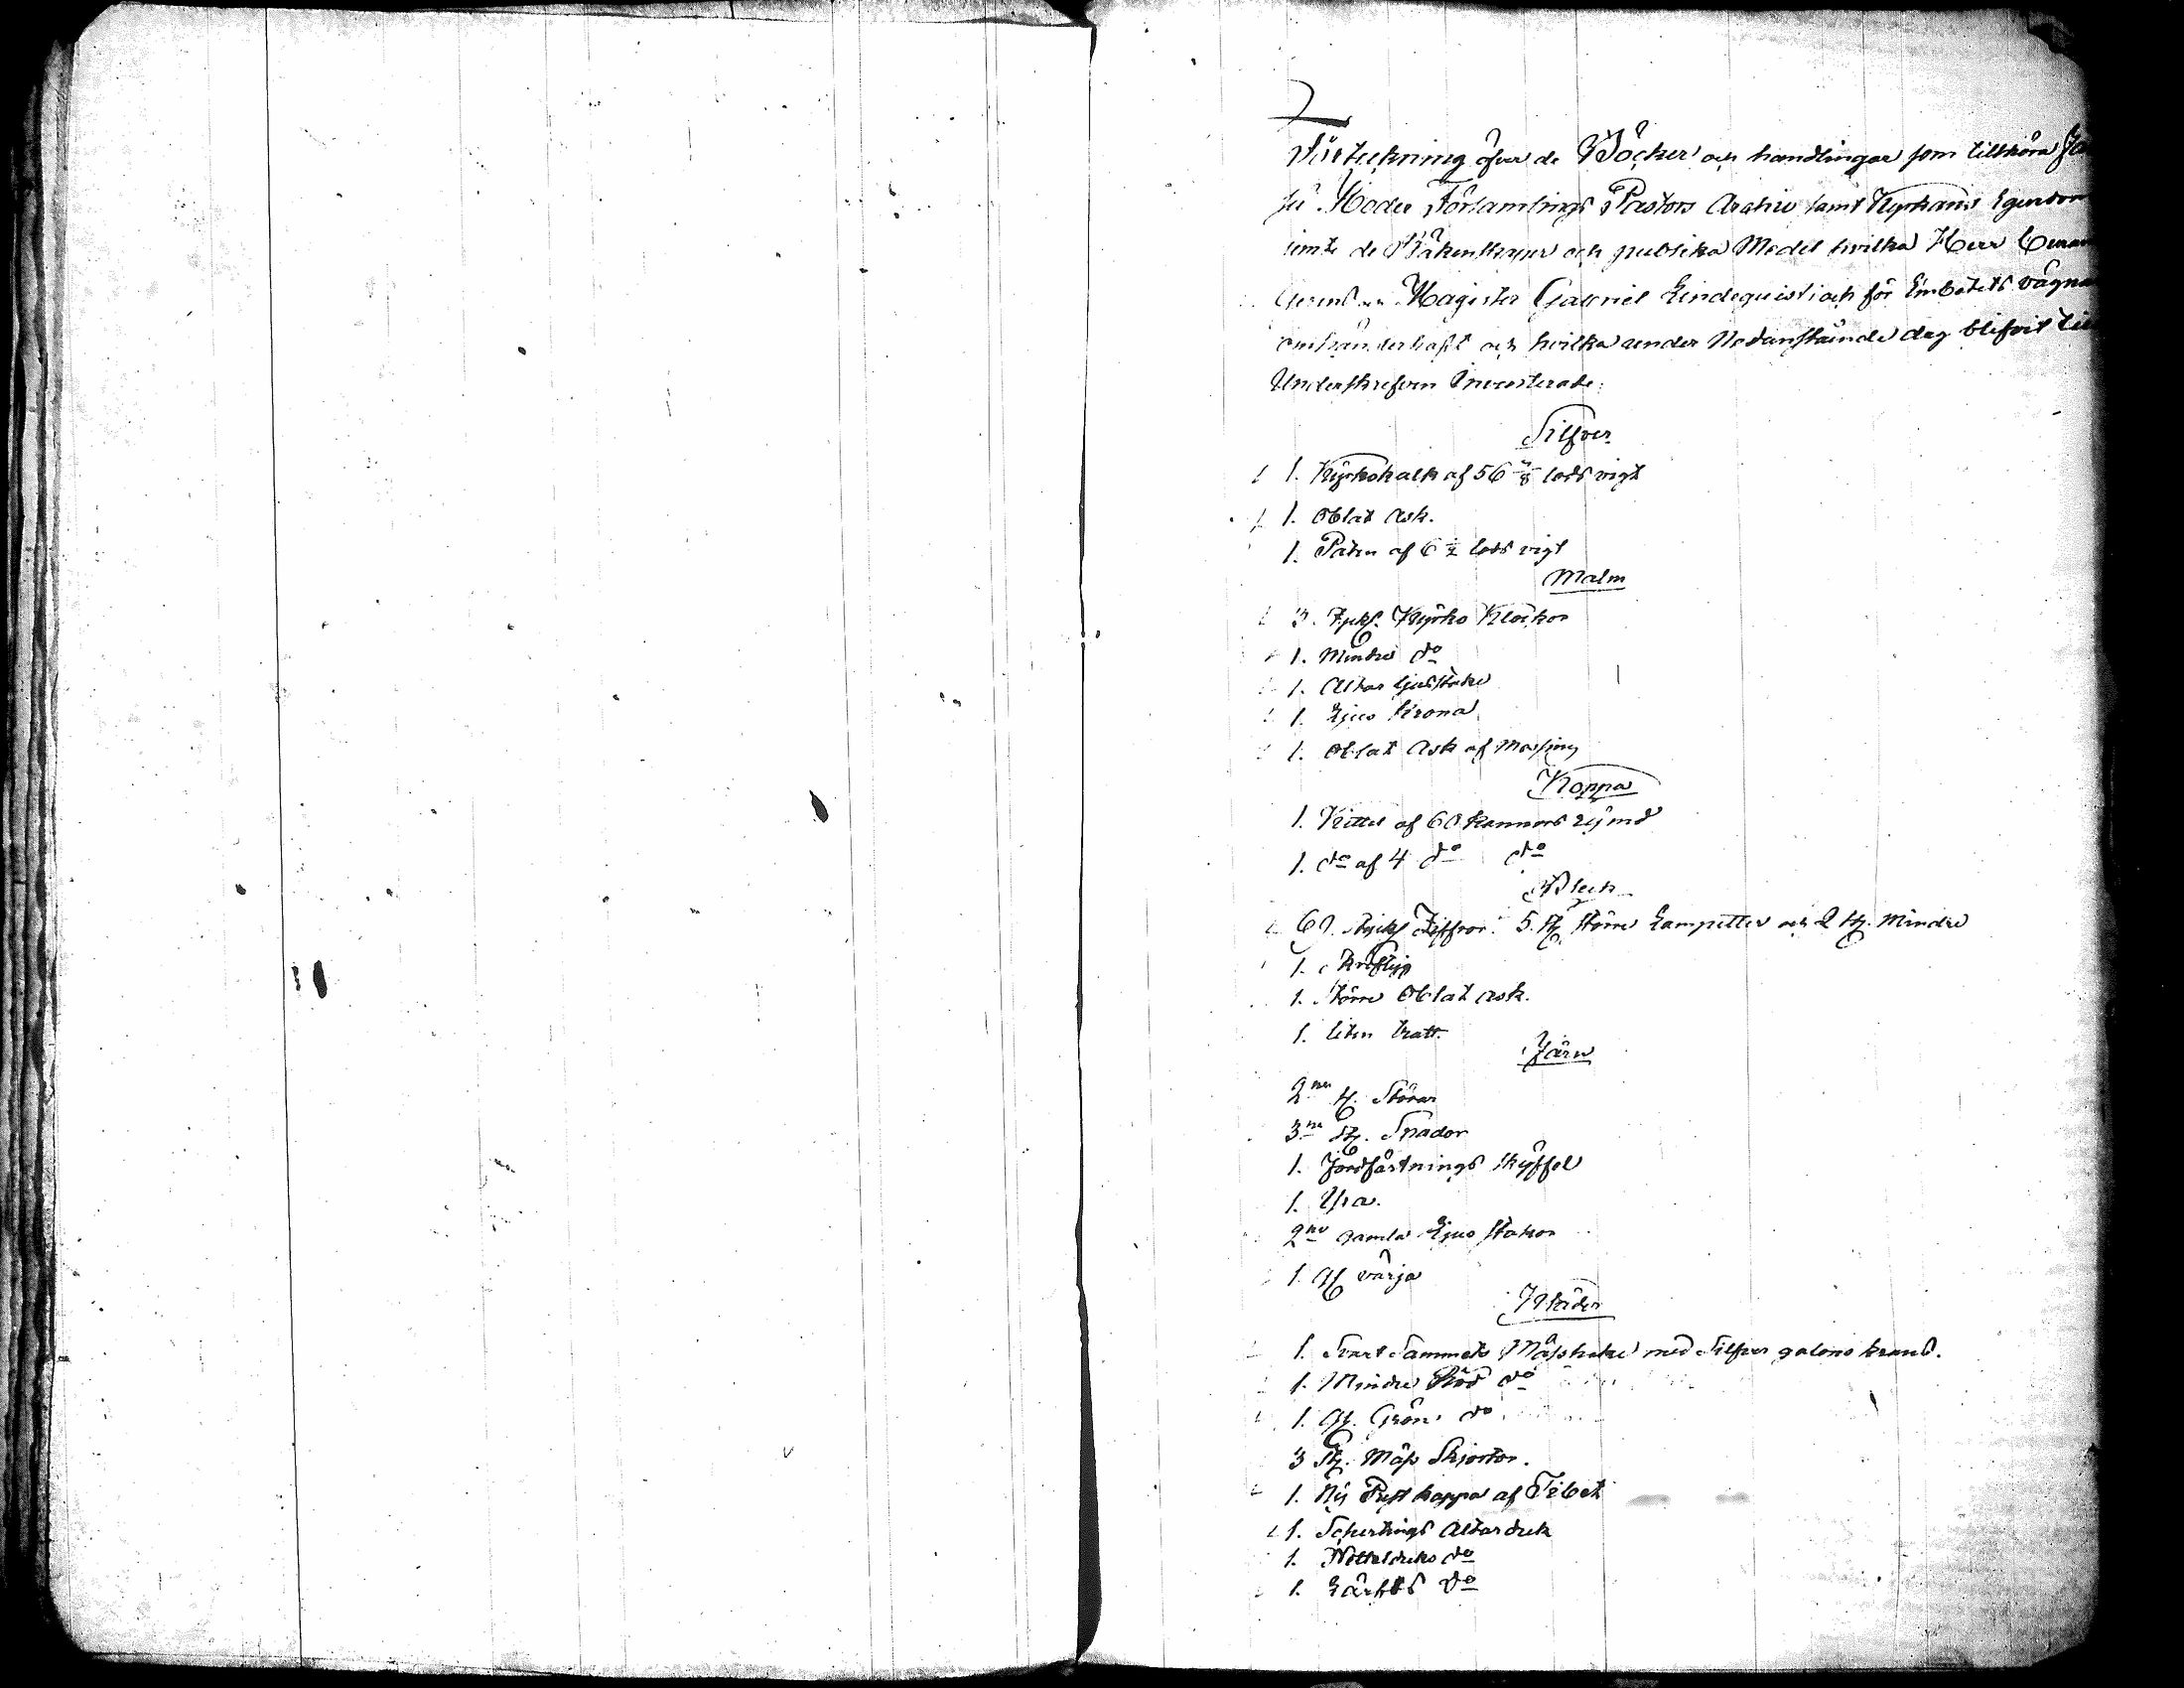 Förteckning öfver de Böcker och handlingar som tillhöra
Moder Församlings Pastors Archiv samt Kyrkans Egendom
jemte de Räkenskaper och publika Medel hvilka Herr
Magister Gabriel Lindequist och för Embetets vägnar
omhänderhaft och hvilka under Nedanstående dag blifvit
Underskrefven Inventerade:
Silfver
1. Kyrkokalk af 56 lods vigt
1. Oblat Ask.
1. Paten af 6 1/2 lods vigt
Malm
3. st. Kyrko Klockor
1. Mindre do
1. Altar ljusstake
1. Ljus krona
1. Oblat Ask af Messing
Koppar
1. Kittel af 60 kannors rymd
1. do af 4 do do
Bleck
60. styck Ziffror. 5. st. större Lampetter och 2 st. Mindre
1.
1. Större Oblat ask.
1. liten tratt.
Järn
2ne st. Störar
3ne st. Spador
1. Jordfästnings skyffel
1. Yxa.
2ne gamla Ljus stakar
1. gl. värja
Kläder
1. Svart Sammets Mässhake med Silfver galons krans.
1. Mindre Röd do
1. gl. Grön do
3 st. Mäss Skjortor.
1. Ny Prest kappa af Tibet
1. Schertings Altarduk
1. Nettelduks do
1. Lärfts do